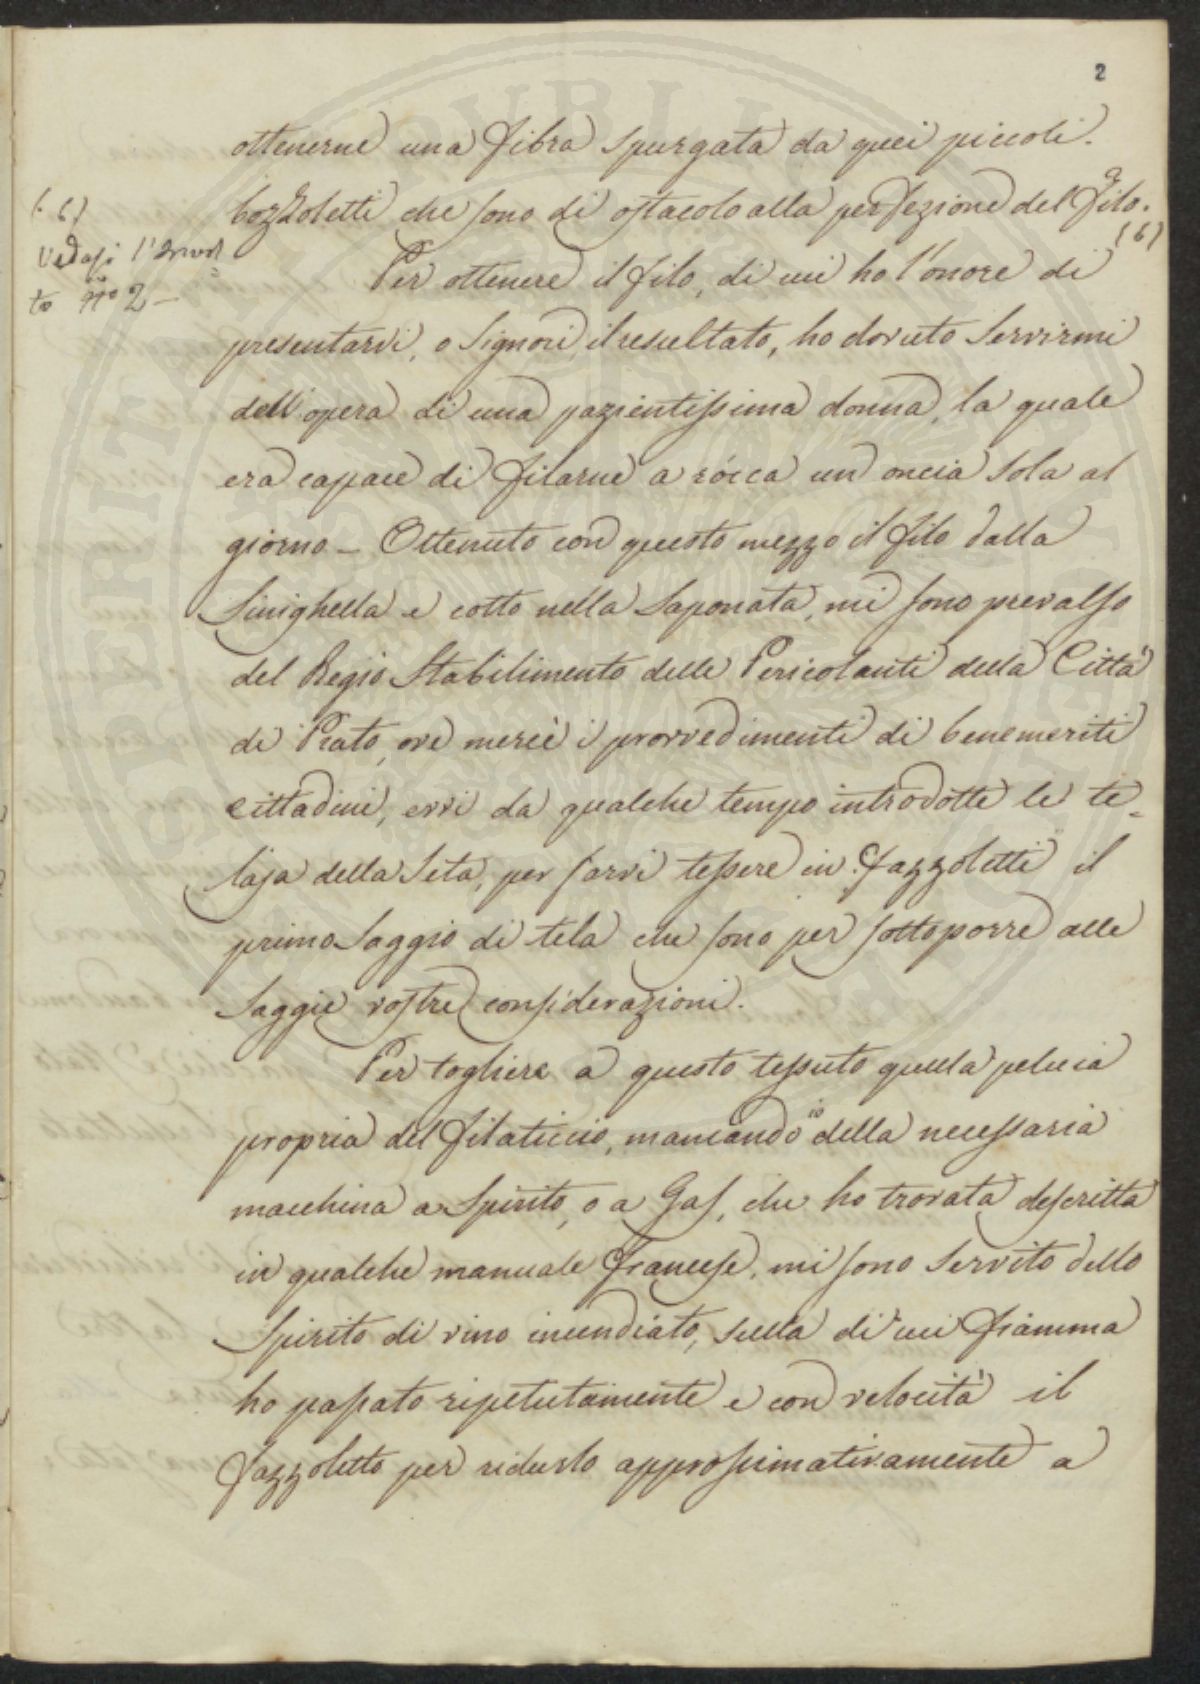 2
ottenerne una fibra spurgata da quei piccoli
bozzoletti che sono di ostacolo alla perfezione del filo.
(6)
(6)
Vedasi l'Invol
to N° 2 —
Per ottenere il filo, di cui ho l'onore di
presentarvi, o Signori, il resultato, ho dovuto servirmi
dell'opera di una pazientissima donna, la quale
era capace di filarne a rócca un oncia sola al
giorno — Ottenuto con questo mezzo il filo dalla
Sinighella e cotto nella Saponata, mi sono prevalso
del Regio Stabilimento delle Pericolanti della Città
di Prato, ove mercè i provvedimenti di benemeriti
cittadini, evvi da qualche tempo introdotte le te=
laja della Seta, per farvi tessere in fazzoletti il
primo Saggio di tela che sono per sottoporre alle
Saggie vostre considerazioni.
Per togliere a questo tessuto quella pelucia
propria del filaticcio, mancando io della necessaria
macchina a Spirito, o a Gas, che ho trovata descritta
in qualche manuale francese, mi sono servito dello
Spirito di vino incendiato, sulla di cui fiamma
ho passato ripetutamente e con velocità il
fazzoletto per ridurlo approssimativamente a